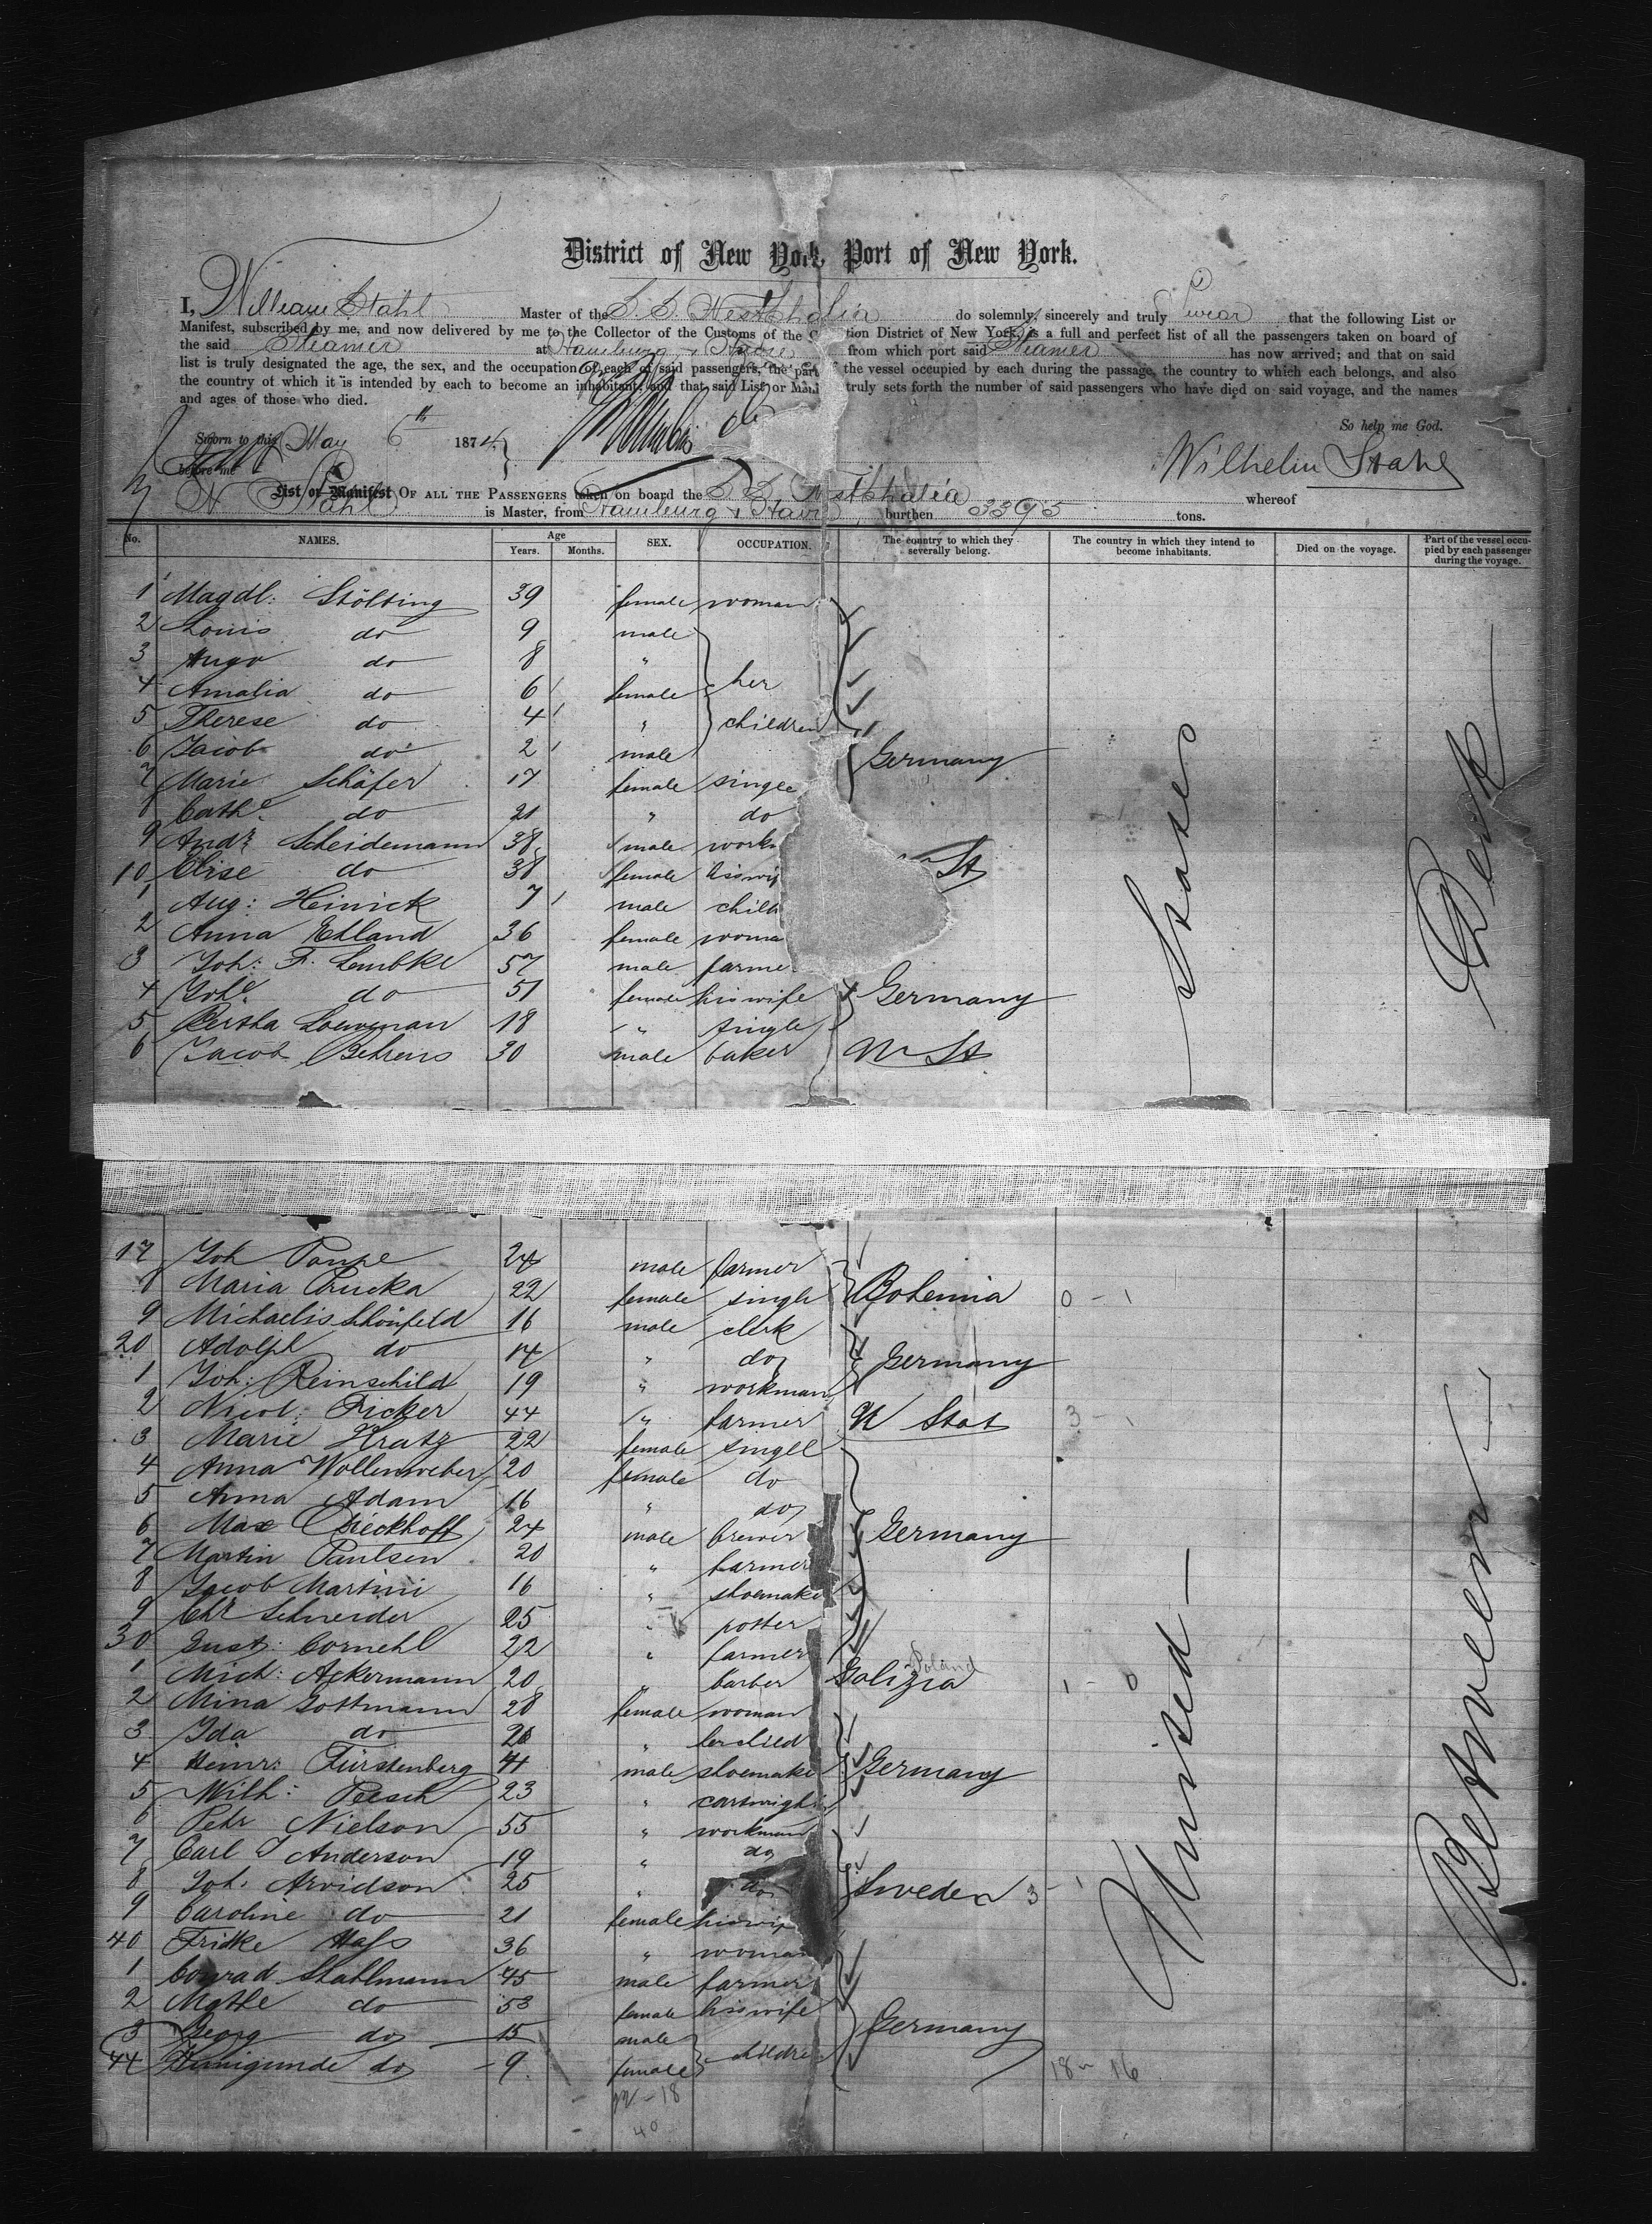 District of New York, Port of New York.
I, William Stahl Master of the S. S. Westphalia do solemnly, sincerely and truly Swear that the following List or
Manifest, subscribed by me, and now delivered by me to the Collector of the Customs of the C tion District of New York, is a full and perfect list of all the passengers taken on board of
the said Steamer at Hamburg & Havre from which port said Steamer has now arrived; and that on said
list is truly designated the age, the sex, and the occupation of each of said passengers, the part of the vessel occupied by each during the passage, the country to which each belongs, and also
the country of which it is intended by each to become an inhabitant, and that said List or Mani truly sets forth the number of said passengers who have died on said voyage, and the names
and ages of those who died.
So help me God.
Sworn to this May 6th 1874
before me
Wilhelm Stahl
List or Manifest OF ALL THE PASSENGERS taken on board the S. S. Westphalia whereof
Stahl is Master, from Hamburg & Havre burthen 3395 tons.
No. NAMES. Age Years. Months. SEX. OCCUPATION. The country to which they severally belong. The country in which they intend to become inhabitants. Died on the voyage. Part of the vessel occupied by each passenger during the voyage.
1 Magdl: Stölting 39 female woman
2 Louis do 9 male
3 Hugo do 8 "
4 Amalia do 6 female her
5 Therese do 4 " children
6 Jacob do 2 male Germany
7 Marie Schäfer 17 female single
8 Cathe do 21 " do
9 Andr Scheidemann 38 male workm
10 Elise do 38 female his wif St
1 Aug: Heinick 7 male child
2 Anna Ehland 36 female woma
3 Joh: F. Lembke 57 male farme
4 Johe do 51 female his wife Germany
5 Bertha Loewman 18 " single
6 Jacob Behrens 30 male baker U St
States
Deck
17 Joh 24 male farmer
8 Maria Crucka 22 female single Bohemia 0 - 1
9 Michaelis Schönfeld 16 male clerk
20 Adolph do 14 " do Germany
1 Joh: Reinschild 19 " workman
2 Nicol: Ficker 44 " farmer U Stat 3 - 1
3 Marie Kratz 22 female singel
4 Anna Wollenweber 20 female do
5 Anna Adam 16 " do
6 Max Dieckhoff 24 male brewer Germany
7 Martin Paulsen 20 " farmer
8 Jacob Martini 16 " shoemake
9 Chr Schneider 25 " potter
30 Gust: Cornehl 22 " farmer
1 Mich: Ackermann 20 " barber Galizia Poland 1 - 0
2 Mina Gottmann 28 female woman
3 Ida do " her child
4 Heinr: Fürstenberg 41 male shoemake Germany
5 Wilh: Peesch 23 " cartwright
6 Pehr Nielson 55 " workman
7 Carl J Anderson 19 " do
8 Joh. Arvidson 25 " do Sweden 3 - 1
9 Caroline do 21 female his wif
40 Fridke Hass 36 " woman
1 Conrad Stahlmann 45 male farmer
2 Mathe do 53 female his wife
3 Georg do 15 male Germany
44 Kunigunde do 9 female childre
18 - 16
22 - 18
40
United
Between